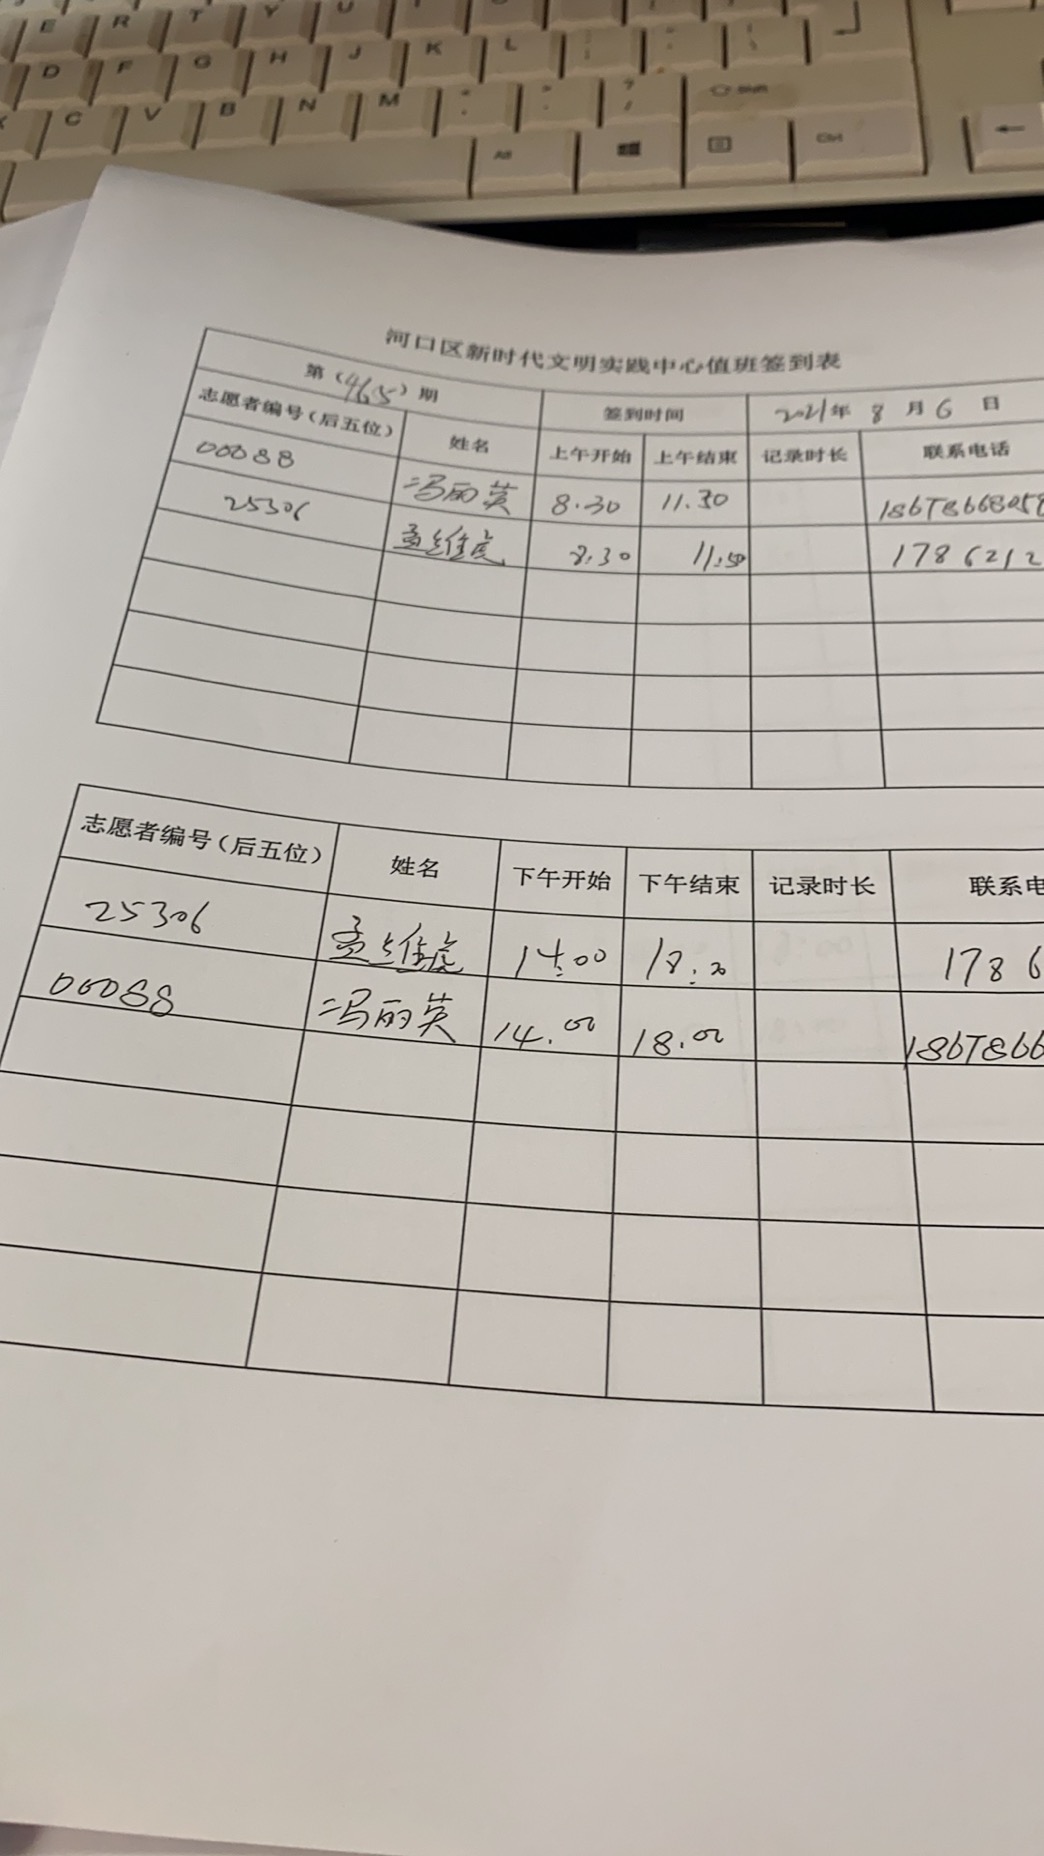 E R T Y U
D F G H J K L
C V B N M Shift
Alt Ctrl
河口区新时代文明实践中心值班签到表
第（465）期 签到时间 2021年 8 月 6 日
志愿者编号（后五位） 姓名 上午开始 上午结束 记录时长 联系电话
00088 冯丽英 8.30 11.30
25306 孟维虎 8.30 1786212
志愿者编号（后五位） 姓名 下午开始 下午结束 记录时长 联系电
25306 孟维虎 14:00 1786
00088 冯丽英 14.00 18.00